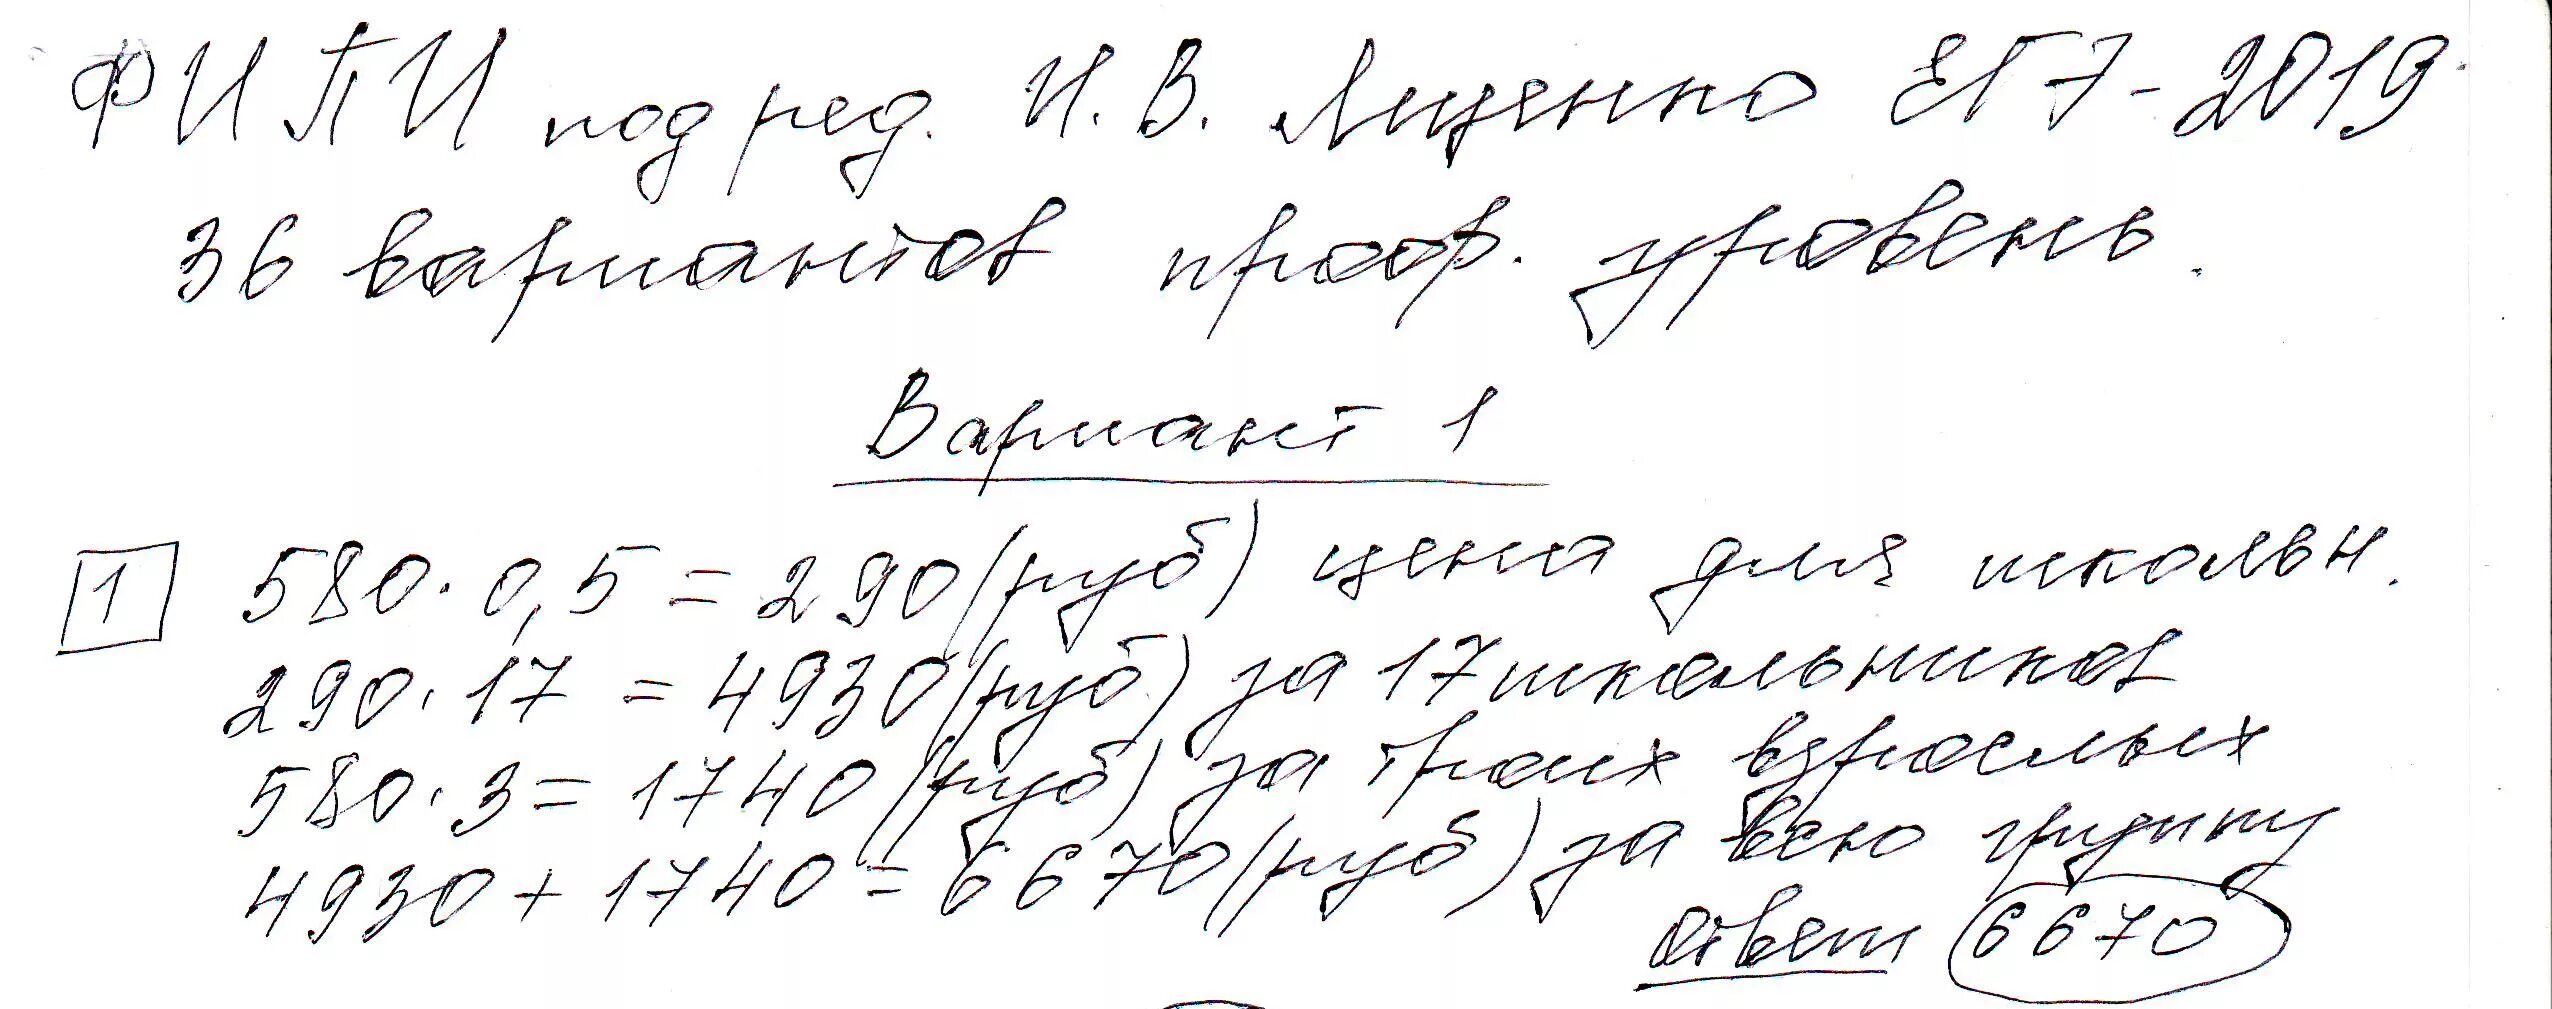 ФИПИ под ред. И.В. Ященко ЕГЭ-2019.
36 вариантов проф. уровень.
Вариант 1
1 580·0,5=290(руб) цена для школьн.
290·17=4930(руб) за 17 школьников
580·3=1740(руб) за троих взрослых
4930+1740=6670(руб) за всю группу
Ответ 6670